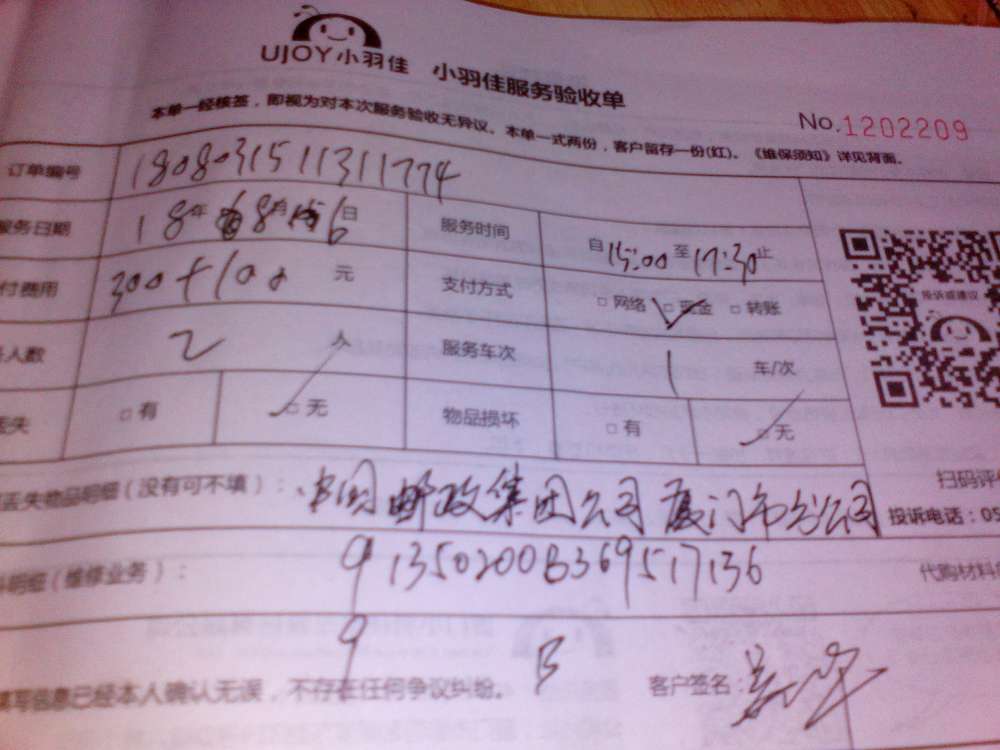 UJOY小羽佳 小羽佳服务验收单
本单一经核签，即视为对本次服务验收无异议。本单一式两份，客户留存一份(红)。《维保须知》详见背面。
No.1202209
订单编号 1808031511311774
服务日期 18年8月6日 服务时间 自15:00至17:30止
付费用 300+100元 支付方式 □网络 □现金 □转账
人数 2 服务车次 1 车/次
丢失 □有 □无 物品损坏 □有 □无
投诉或建议
丢失物品明细(没有可不填)： 中国邮政集团公司厦门市分公司
扫码评
投诉电话：05
明细(维修业务)： 91350200B369517136
代购材料
9 B
填写信息已经本人确认无误，不存在任何争议纠纷。 客户签名：